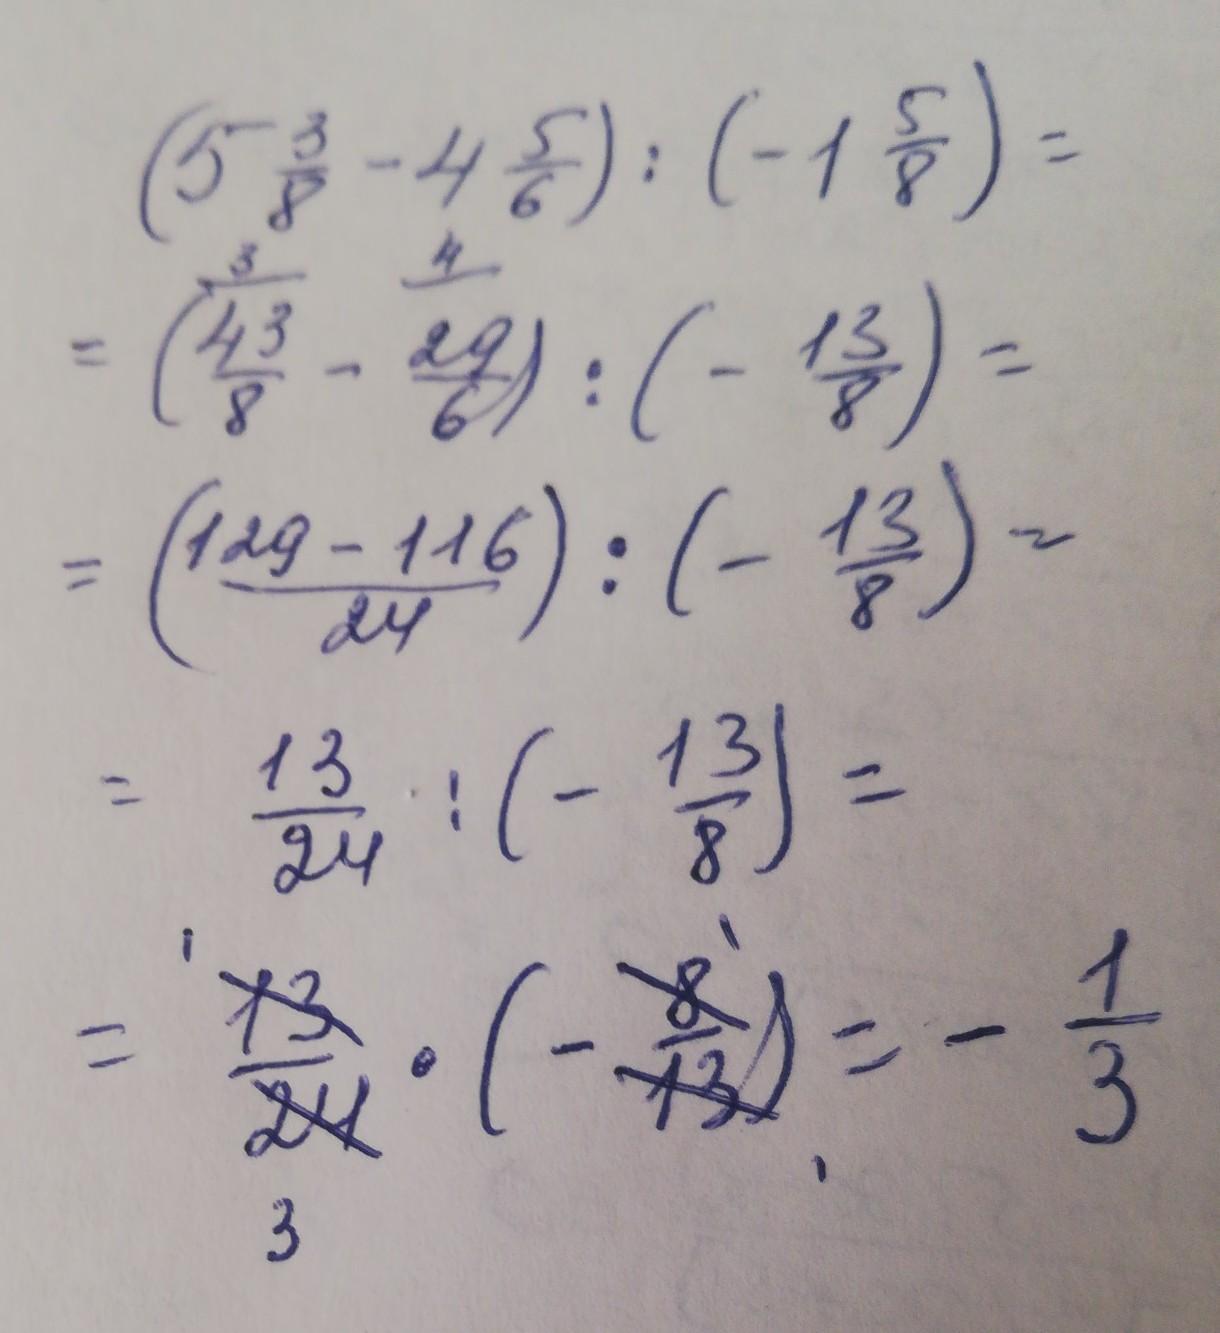 (5 3/8 - 4 5/6) : (-1 5/8) =
3 4
= (43/8 - 29/6) : (- 13/8) =
= (129 - 116/24) : (- 13/8) =
= 13/24 : (- 13/8) =
1 1
= 13/24 · (- 8/13) = - 1/3
3 1